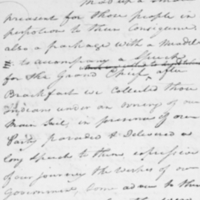 made up a small
present for those people in
proportion to their Consiquence
also a package with a Meadel
to accompany a Speech
for the Grand Chief after
Brackfast we collected those
Indians under an orning of our
Main Sail, in presence of our
Party paraded & Delivered a
long Speech to them expressive
of our journey the wishes of our
Government, Some advice to them